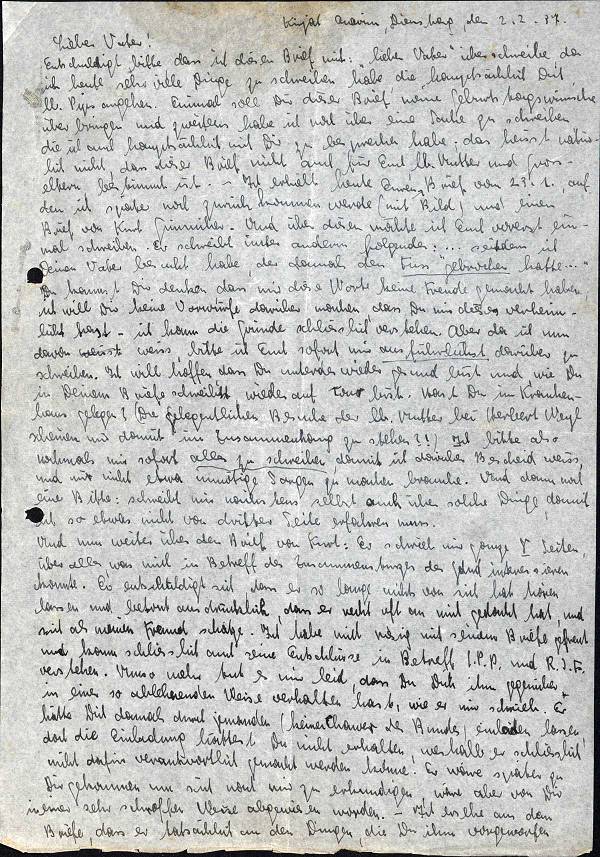 Kirjat Anavim, Dienstag, den 2.2.37.
Lieber Vater!
Entschuldigt bitte dass ich diesen Brief mit: "lieber Vater" überschreibe, da
ich heute sehr viele Dinge zu schreiben habe die hauptsächlich Dich
lb. angehen. Einmal soll Dir dieser Brief meine Geburtstagswünsche
überbringen und zweitens habe ich noch über eine Sache zu schreiben
die ich auch hauptsächlich mit Dir zu besprechen habe. das heisst natür-
lich nicht, dass dieser Brief nicht auch für Euch lb. Mutter und Gross-
eltern bestimmt ist. – Ich erhielt heute Eueren Brief vom 23.1., auf
den ich später noch zurück kommen werde (mit Bild) und einen
Brief von Kurt. Und über diesen möchte ich Euch vorerst ein-
mal schreiben. Er schreibt unter anderem folgendes: ... seitdem ich
Deinen Vater besucht habe, der damals den Fuss "gebrochen hatte..."
Du kannst Dir denken dass mir diese Worte keine Freude gemacht haben,
ich will Dir keine Vorwürfe darüber machen dass Du mir dieses verheim-
licht hast – ich kann die Gründe schliesslich verstehen. Aber da ich nun
davon weiss, bitte ich Euch sofort mir ausführlichst darüber zu
schreiben. Ich will hoffen dass Du wieder gesund bist und wie Du
in Deinem Briefe schreibst wieder auf Tour bist. Hast Du im Kranken-
haus gelegen? (Die gelegentlichen Besuche der lb. Mutter bei Herbert Weyl
scheinen mir damit im Zusammenhang zu stehen?!) Ich bitte also
nochmals mir sofort alles zu schreiben damit ich darüber Bescheid weiss,
und mir nicht etwa unnötige Sorgen zu machen brauche. Und dann noch
eine Bitte: schreibt mir nächstens selbst auch über solche Dinge damit
ich so etwas nicht von dritter Seite erfahren muss.
Und nun weiter über den Brief von Kurt: Er schrieb mir ganze V Seiten,
über alles was mich in Betreff des Zusammenbruches des interessieren
konnte. Er entschuldigt sich dass er so lange nichts von sich hat hören
lassen und betont ausdrücklich, dass er recht oft an mich gedacht hat, und
mich als seinen Freund schätze. Ich habe mich riesig mit seinem Briefe gefreut
und kann schliesslich auch seine Entschlüsse in Betreff I.P.D. und R.J.F.
verstehen. Umso mehr tut es mir leid, dass Du Dich ihm gegenüber
in einer so ablehnenden Weise verhalten hast, wie er mir schrieb. Er
hätte Dich damals durch jemanden (keinen Chawer des Bundes) einladen lassen,
doch die Einladung hättest Du nicht erhalten, weshalb er schliesslich
nicht dafür verantwortlich gemacht werden könne. Er wäre später zu
Dir gekommen um sich nach mir zu erkundigen, wäre aber von Dir
in einer sehr schroffen Weise abgewiesen worden. – Ich ersehe aus dem
Briefe, dass er tatsächlich an den Dingen, die Du ihm vorgeworfen